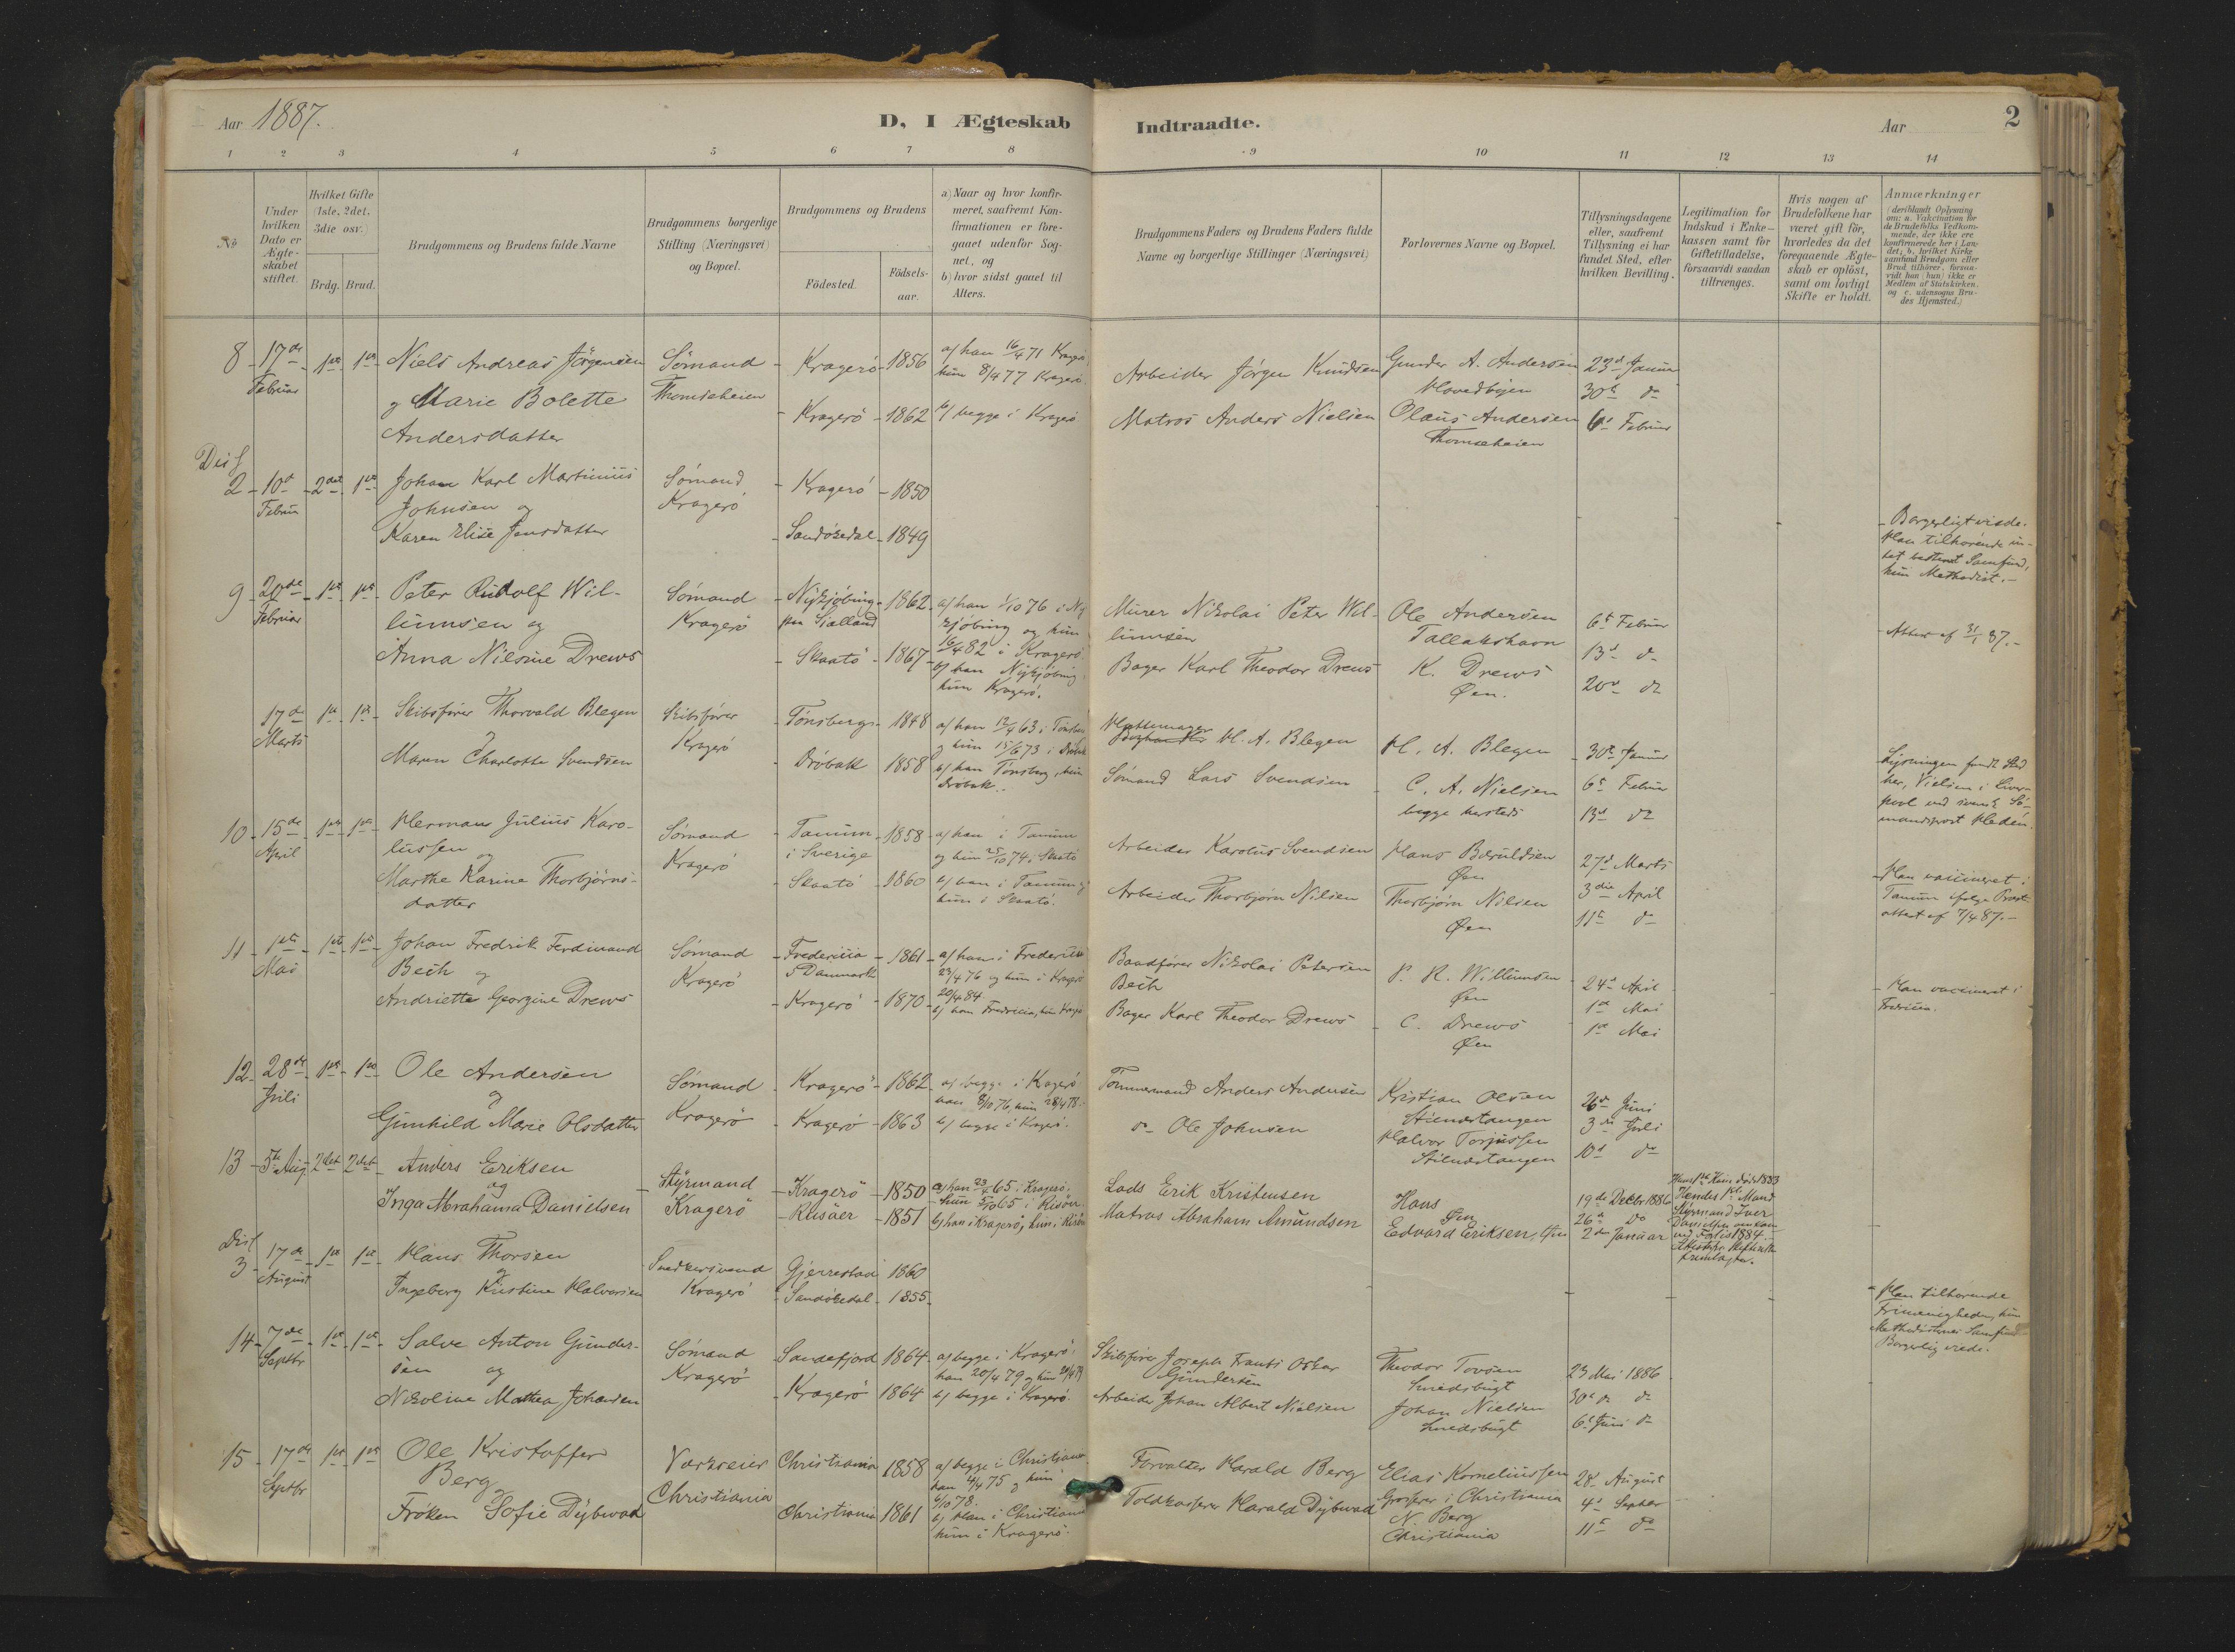 Aar 1887.
D, I Ægteskab
Indtraadte.
Aar
2
1 2 3 4 5 6 7 8
9 10 11 12 13 14
No
Under hvilken Dato er Ægteskabet stiftet.
Hvilket Gifte (1ste, 2det, 3die osv.)
Brdg. Brud.
Brudgommens og Brudens fulde Navne
Brudgommens borgerlige Stilling (Næringsvei) og Bopæl.
Brudgommens og Brudens
Födested.
Födsels-aar.
a) Naar og hvor konfir-
meret, saafremt Kon-
firmationen er fore-
gaaet udenfor Sog-
net, og
b) hvor sidst gaaet til
Alters.
Brudgommens Faders og Brudens Faders fulde
Navne og borgerlige Stillinger (Næringsvei)
Forlovernes Navne og Bopæl.
Tillysningsdagene
eller, saafremt
Tillysning ei har
fundet Sted, efter
hvilken Bevilling.
Legitimation for
Indskud i Enke-
kassen samt for
Giftetilladelse,
forsaavidt saadan
tiltrænges.
Hvis nogen af
Brudefolkene har
været gift för,
hvorledes da det
foregaaende Ægte-
skab er oplöst,
samt om lovligt
Skifte er holdt.
Anmærkninger
(deriblandt Oplysning
om: a. Vakcination for
de Brudefolks Vedkom-
mende, der ikke ere
konfirmerede her i Lan-
det; b. hvilket Kirke-
samfund Brudgom eller
Brud tilhörer, forsaa-
vidt han (hun) ikke er
Medlem af Statskirken,
og c. udensogns Bru-
des Hjemsted.)
8 17de Februar 1ste 1ste Niels Andreas Jörgensen
og Marie Bolette
Andersdatter
Sömand
Thomseheien
Kragerö 1856
Kragerö 1862
a/ han 16/4 71 Kragerö,
hun 8/4 77 Kragerö
b/ begge i Kragerö
Arbeider Jörgen Knudsen
Matros Anders Nielsen
Gunder A. Andersen
Hovedbyen
Olaus Andersen
Thomseheien
23de Januar
30te do
6te Februar
Dis/
2 10de Februar 2det 1ste Johan Karl Martinius
Johnsen og
Karen Elise Jensdatter
Sömand
Kragerö
Kragerö 1850
Sandökedal 1849
Borgerligt viede.
Han tilhörende in-
tet bestemt Samfund,
hun Methodist.
9 20de Februar 1ste 1ste Peter Rudolf Wil-
lumsen og
Anna Nilsine Drews
Sömand
Kragerö
Nykjöbing
paa Sjælland 1862
Skaatö 1867
a/ han 1/10 76 i Ny
kjöbing og hun
16/4 82 i Kragerö
b/ han Nykjöbing,
hun Kragerö.
Murer Nikolai Peter Wil-
lumsen
Bager Karl Theodor Drews
Ole Andersen
Tallakshavn
K. Drews
Øen.
6te Februar
13de do
20de do
Attest af 31/1 87.
17de Marts 1ste 1ste Skibsförer Thorvald Blegen
og
Maren Charlotte Svendsen
Skibsförer
Kragerö
Tönsberg 1848
Dröbak 1858
a/ han 12/4 63 i Tönsberg
og hun 15/6 73 i Dröbak
b/ han Tönsberg, hun
Dröbak.
Hattemager H. A. Blegen
Sömand Lars Svendsen
H. A. Blegen
C. A. Nielsen
begge hersteds
30te Januar
6te Februar
13de do
Lysningen fandt Sted
her, Vielsen i Liver-
pool ved svensk Sö-
mandsprest Hedén.
10 15de April 1ste 1ste Herman Julius Karo-
lussen og
Marthe Karine Thorbjörns-
datter
Sömand
Kragerö
Tanum
i Sverige 1858
Skaatö 1860
a/ han i Tanum
og hun 25/10 74 i Skaatö
b/ han i Tanum og
hun i Skaatö.
Arbeider Karolus Svendsen
Arbeider Thorbjörn Nilsen
Hans Baruldsen
Øen
Thorbjörn Nilsen
Øen
27de Marts
3die April
11te do
Han vaccineret i
Tanum ifölge Preste-
attest af 7/4 87.
11 1ste Mai 1ste 1ste Johan Fredrik Ferdinand
Bech og
Andriette Georgine Drews
Sömand
Kragerö
Fredericia
i Danmark 1861
Kragerö 1870
a/ han i Fredericia
23/4 76 og hun i Kragerö
20/4 84
b/ han Fredricia, hun Kragerö
Baadförer Nikolai Petersen
Bech
Bager Karl Theodor Drews
P. R. Willumsen
Øen
C. Drews
Øen
24de April
1ste Mai
1ste Mai
Han vaccineret i
Fredricia.
12 28de Juli 1ste 1ste Ole Andersen
og
Gunhild Marie Olsdatter
Sömand
Kragerö
Kragerö 1862
Kragerö 1863
a/ begge i Kragerö
han 8/10 76, hun 28/4 78.
b/ begge i Kragerö.
Tömmermand Anders Andersen
do Ole Johnsen
Kristian Olsen
Stilnestangen
Halvor Torjussen
Stilnestangen
26de Juni
3die Juli
10de do
13 5te Aug 2det 2det Anders Eriksen
og
Inga Abrahama Danielsen
Styrmand
Kragerö
Kragerö 1850
Risöer 1851
a/ han 23/4 65 i Kragerö.
hun 5/10 65 i Risöer.
b/ han i Kragerö, hun i Risöer
Lods Erik Kristensen
Matros Abraham Amundsen
Hans
Øen
Edvard Eriksen, Øen
19de Decbr 1886
26de do
2den Januar
Hans 1ste Kone död 1883
Hendes 1ste Mand
Styrmand Iver
Danielsen omkom
ved Forlis 1884.
Dis/
3 17de August 1ste 1ste Hans Thorsen
og
Ingeborg Kristine Halvorsen
Snedkersvend
Kragerö
Gjerrestad 1860
Sandökedal 1855
Han tilhörende
Frimenigheden, hun
Methodisternes Samfund
Borgerlig viede.
14 7de Septbr 1ste 1ste Salve Anton Gunder-
sen og
Nikoline Mathea Johansen
Sömand
Kragerö
Sandefjord 1864
Kragerö 1864
a/ begge i Kragerö,
han 20/4 79 og hun 20/4 79
b/ begge i Kragerö.
Skibsförer Joseph Frants Oskar
Gundersen
Arbeider Johan Albert Nielsen
Theodor Tovsen
Smedsbugt
Johan Nielsen
Smedsbugt
23 Mai 1886
30te do do
6te Juni do
15 17de Septbr 1ste 1ste Ole Kristoffer
Berg
Fröken Sofie Dybwad
Værkeier
Christiania
Christiania 1858
Christiania 1861
a/ begge i Christiania
han 4/4 75 og hun
6/10 78.
b/ Han i Christiania
hun i Kragerö.
Forvalter Harald Berg
Toldkasserer Harald Dybwad
Elias Korneliussen
Grosserer i Christiania
N. Berg
Christiania
28 August
4de Septbr
11te do